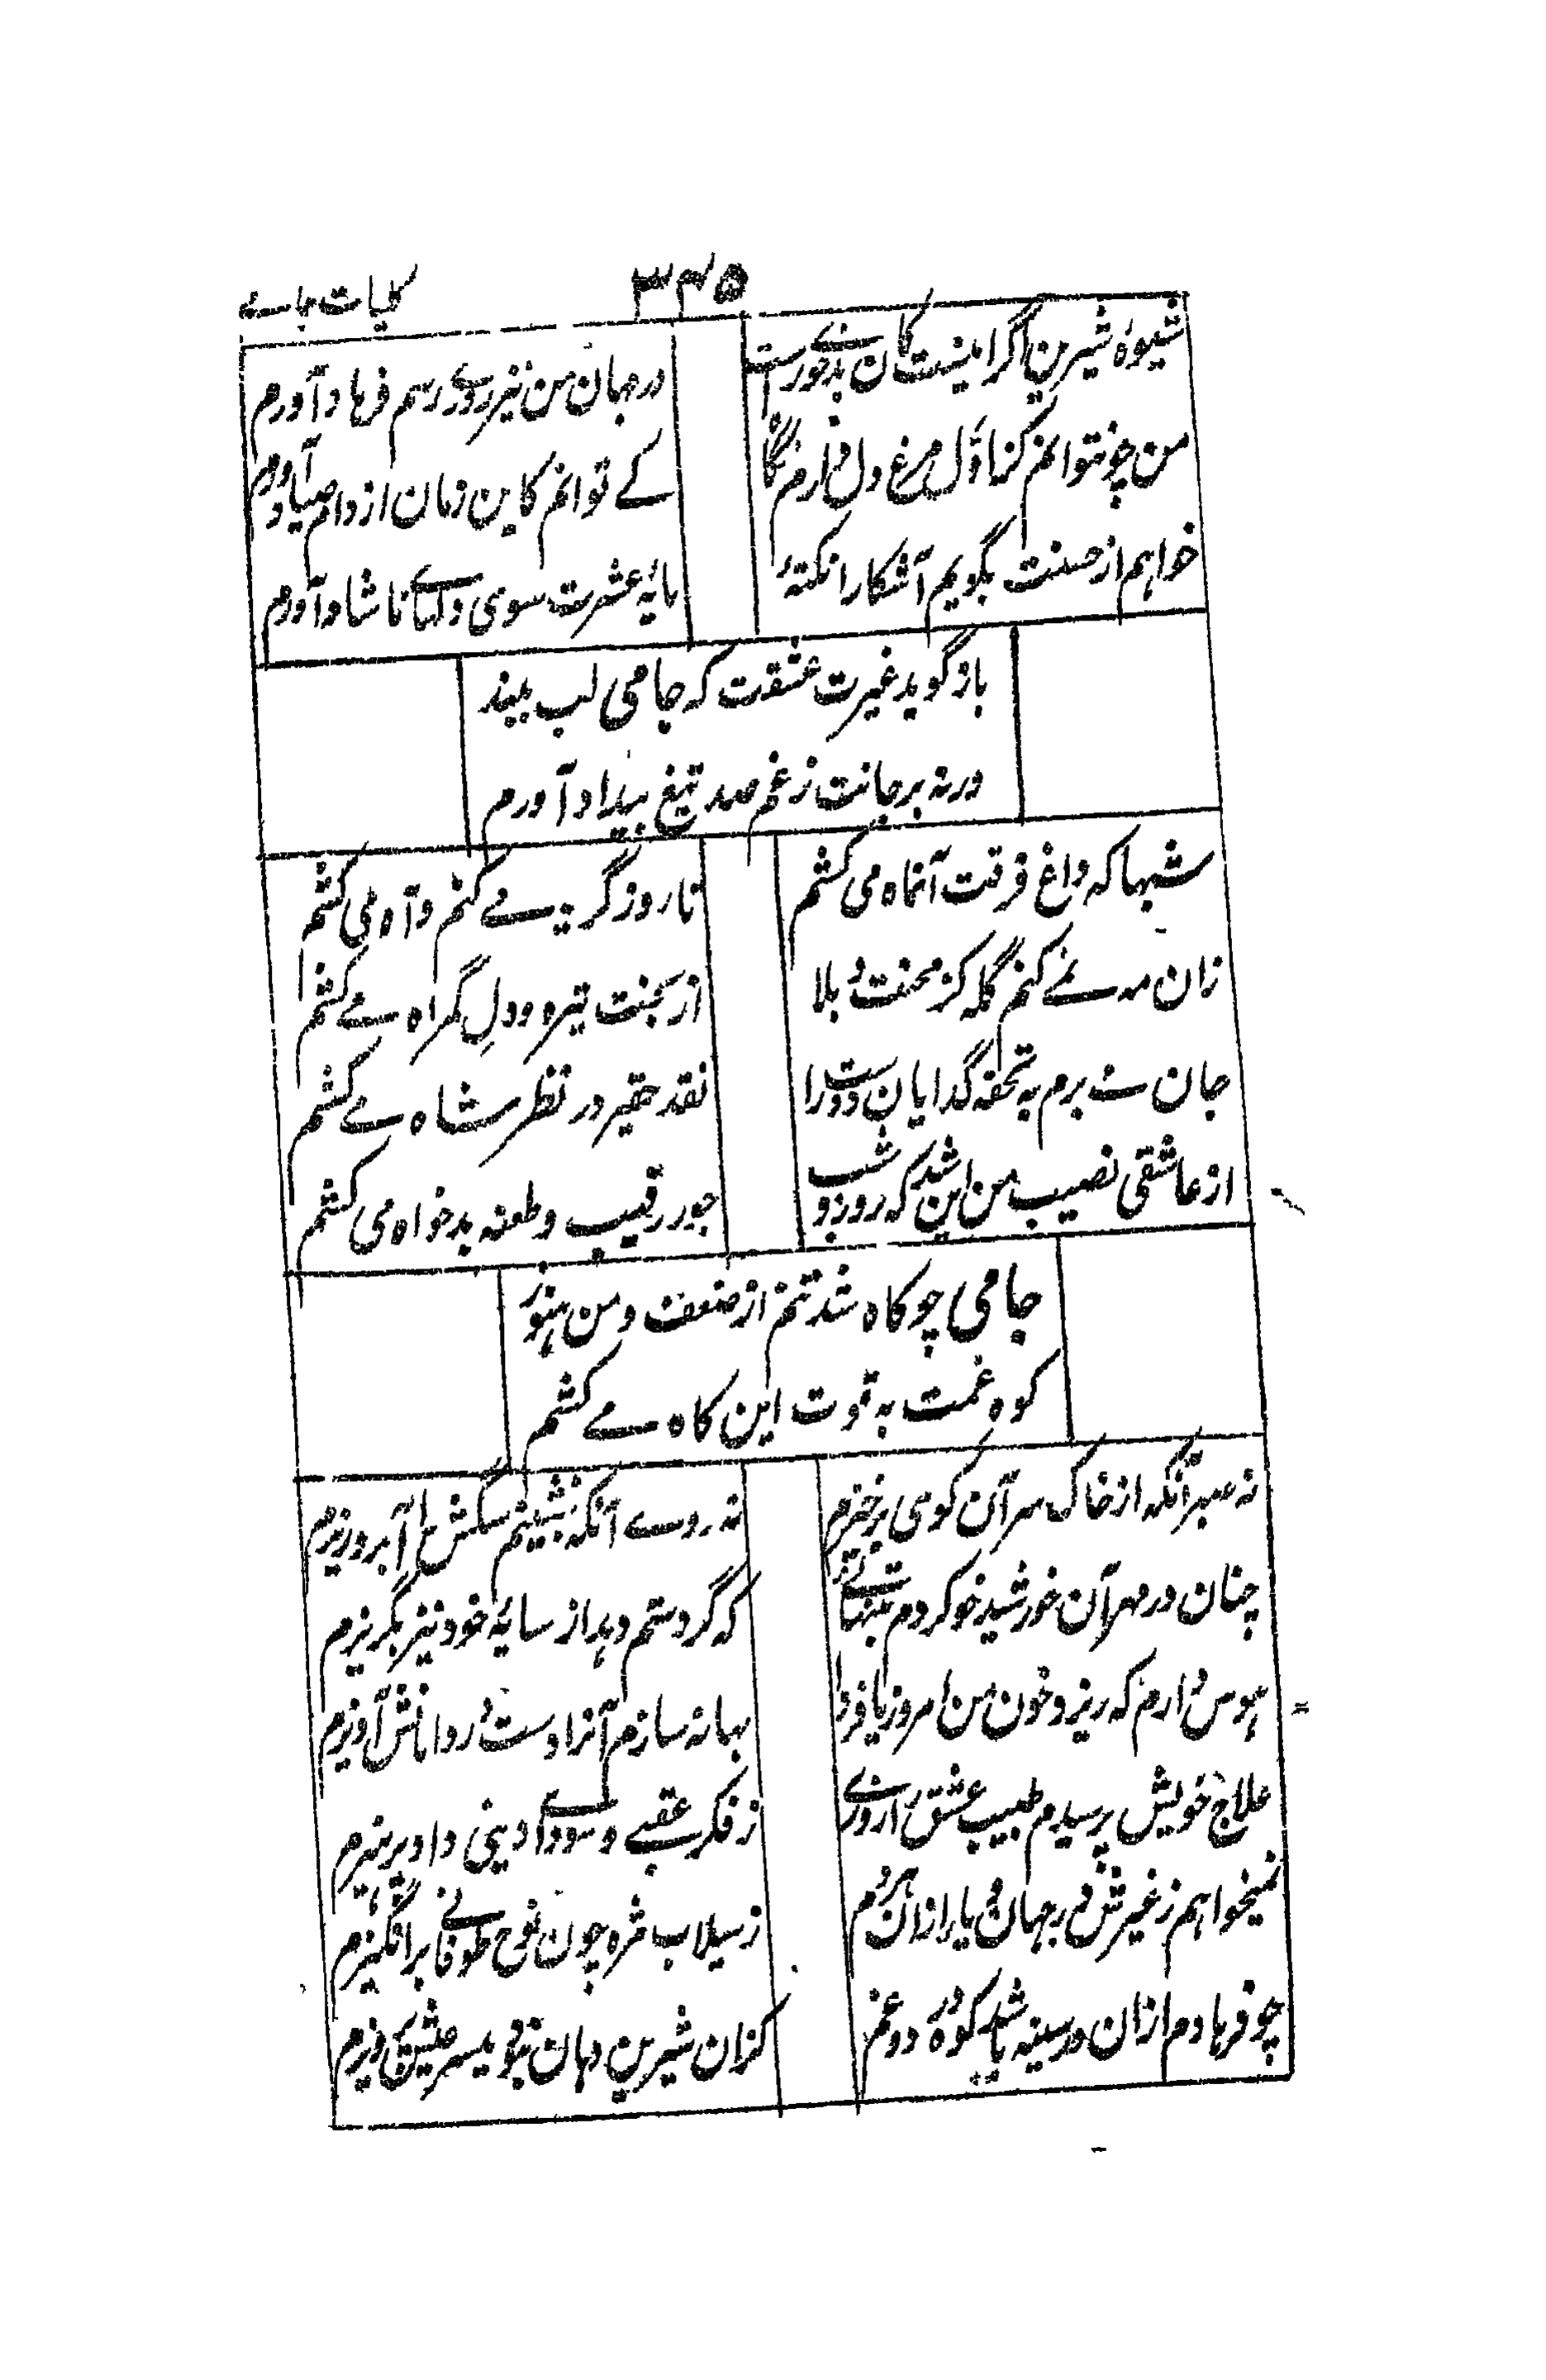 ۳۴۵
کلیات جامے
شیوهٔ شیرین اگر اینست کان بدخو راست
در جهان من نیز روزے رسم فرهاد آورم
من چو نتوانم کز اول مرغ دل دارم نگا
کے توانم کاین زمان از دام صیاد آورم
خواهم از صنت بگویم آشکارا نکتهٔ
مایهٔ عشرت سوی دلهاے ناشاد آورم
باز گوید غیرت عشقت که جامی لب ببند
ورنه بر جانت ز غم صد تیغ بیداد آورم
شبها که داغ فرقت آنماه می کشم
تا روز گریه مے کنم و آه می کشم
زان مه نمے کنم گله کز محنت و بلا
از بخت تیره و دل گمراه مے کشم
جان مے برم به تحفه گدایان دوست را
نقد حقیر در نظر شاه مے کشم
از عاشقی نصیب من این شد که روز و شب
جور رقیب و طعنه بدخواه می کشم
جامی چو کاه شد تنم از ضعف و من هنوز
کوه غمت به قوت این کاه مے کشم
نه صبر آنکه از خاک سر آن کوی برخیزم
نه روے آنکه بنشینم سگش را آبرو ریزم
چنان در مهر آن خورشید خو کردم بتنهائے
که گر دستم دهد از سایهٔ خود نیز بگریزم
هوس دارم که ریزد خون من امروز یا فردا
بهانه سازم آنرا دست در دامانش آویزم
علاج خویش پرسیدم طبیب عشق را روزے
ز فکر عقبے و سوداے دینی داد پرهیزم
نمیخواهم ز غیرتش در جهان دیار ازان هر دم
ز سیلاب مژه چون نوح طوفانے برانگیزم
چو فرهادم ازان در سینه باشد کوه درد و غم
کزان شیرین دهان نبود میسر عیش پرویزم